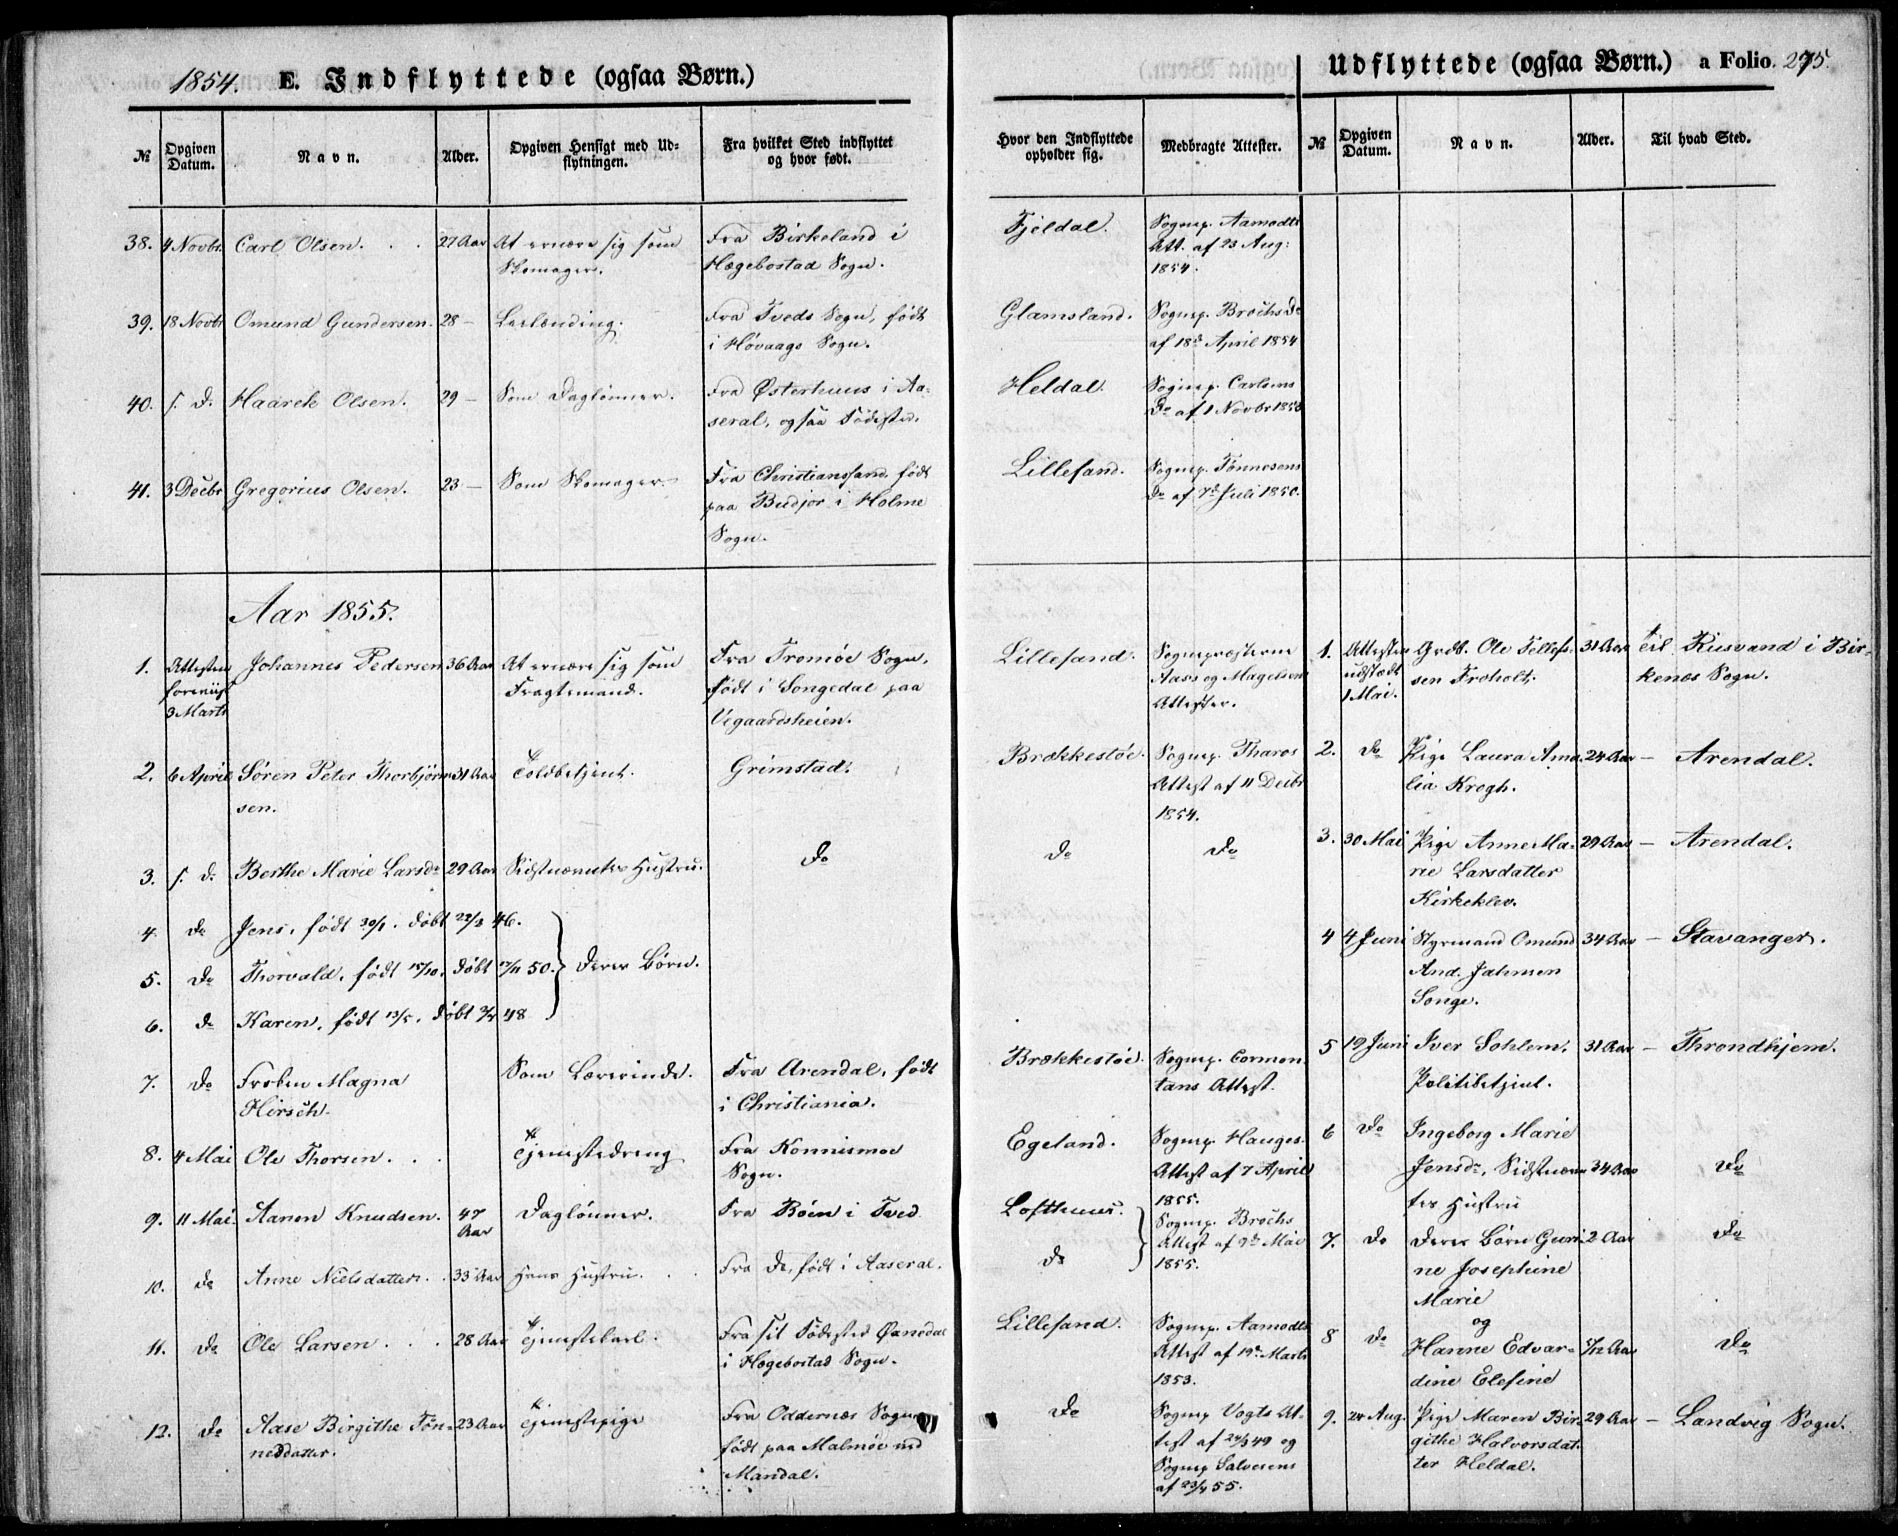 1854. E. Indflyttede (ogsaa Børn.)
Udflyttede (ogsaa Børn.) a Folio. 275.
№ Opgiven Datum. Navn. Alder. Opgiven Hensigt med Udflytningen. Fra hvilket Sted indflyttet og hvor født.
Hvor den Indflyttede opholder sig. Medbragte Attester. № Opgiven Datum. Navn. Alder. Til hvad Sted.
38. 4 Novbr. Carl Olsen. 27 Aar At ernære sig som Fra Birkeland i
Skomager. Hægebostad Sogn.
Fjeldal. Sognep. Aamodts
Att. af 23 Aug:
1854.
39. 18 Novbr Omund Gundersen. 28 — Leilænding. Fra Tveds Sogn, født
i Høvaags Sogn.
Glamsland. Sognep. Brochs Do
af 18de April 1854
40. s. D. Haarek Olsen. 29 — Som Daglønner. Fra Østerhuus i Aa-
seral, ogsaa Fødested.
Heldal. Sognep. Carlsens
Do af 1 Novbr
41. 3 Decbr Gregorius Olsen. 23 — Som Skomager Fra Christianssand, født
paa Budjor i Holme
Sogn.
Lillesand. Sognep. Tønnesens
Do af 7de Juli 1850.
Aar 1855.
1. Attesten Johannes Pedersen 36 Aar At ernære sig som Fra Tromøe Sogn,
foreviist Fragtemand. født i Songedal paa
3 Marts Vegaardsheien.
Lillesand. Sognepræsterne
Aass og Magelsens
Attester.
2. 6 April Søren Peter Thorbjørn- 31 Aar Toldbetjent. Grimstad.
sen.
Brækkestøe. Sognep. Tharos
Attest af 11 Decbr
1854.
3. s. d. Berthe Marie Larsdr 29 Aar Sidstnævntes Hustru. Do
Do Do
4. do Jens, født 30/1. døbt 22/3 46.
5. do Thorvald, født 15/10. døbt 17/11 50. Deres Børn.
6. do Karen, født 13/5. døbt 48
7. do Frøken Magna Som Lærerinde. Fra Arendal, født
Hirsch. i Christiania.
Brækkestøe. Sognep. Cormon-
tans Attest.
8. 4 Mai Ole Thorsen. Tjenestedreng Fra Konnismoe
Sogn.
Egeland. Sognep. Hauges
Attest af 7 April
1855.
9. 11 Mai Aanon Knudsen. 47 Aar Daglønner. Fra Bøen i Tved
Lofthuus. Sognep. Brochs
Attest af 9de Mai
1855.
10. do Anne Nielsdatter. 33 Aar Hans Hustru. Fra do, født i Aaseral.
do
11. do Ole Larsen. 28 Aar Tjenestekarl. Fra sit Fødested
i Hægebostad Sogn.
Lillesand. Sognep. Aamodts
Attest af 19de Marts
1853.
12. do Aase Birgithe Tøn- 23 Aar Tjenestepige Fra Oddernæs Sogn
nesdatter. født paa Malmøe ved
Mandal.
Do Sognep Vogts At-
test af 24/3 49 og
Sognep Salvesens
af 23/4 55.
1. Attesten Grdb. Ole Tellef- 31 Aar til Risvand i Bir-
udstædt sen Froholt. kenes Sogn.
1 Mai.
2. do Pige Laura Ama- 24 Aar — Arendal.
lia Krogh.
3. 30 Mai Pige Anne Ma- 29 Aar — Arendal.
rie Larsdatter
Kirkeklev.
4 4 Juni Styrmand Omund 34 Aar — Stavanger.
And. Jahnsen
Songe.
5 19 Juni Iver Sohlem, 31 Aar — Throndhjem.
Politibetjent.
6 Do Ingeborg Marie
Jensdr, Sidstnævn- 34 Aar Do
tes Hustru
7. do Deres Børn Guri- 2 Aar Do
ne Josephine
Marie
og
8 do Hanne Edvar- /12 Aar Do
dine Elefine
9. Aug. Pige Maren Bir- 29 Aar — Landvig Sogn.
githe Halvorsdat-
ter Heldal.